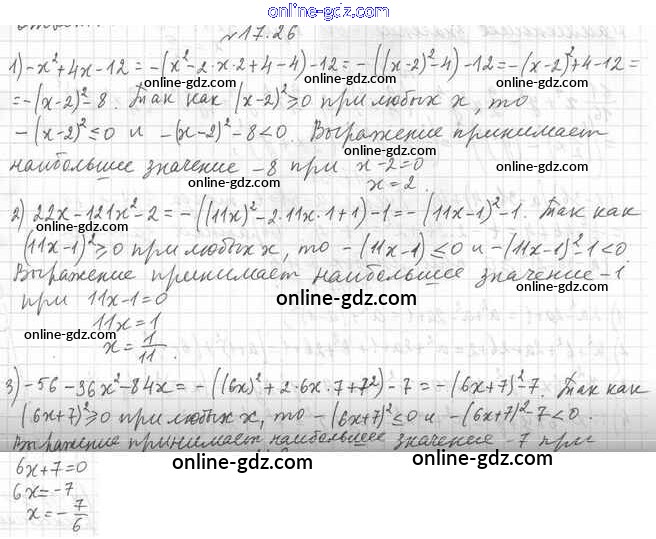 online-gdz.com
№17.26
1) -x²+4x-12 = -(x²-2·x·2+4-4)-12 = -((x-2)²-4)-12 = -(x-2)²+4-12 =
online-gdz.com online-gdz.com online-gdz.com
= -(x-2)²-8. Так как (x-2)² ≥ 0 при любых x, то
online-gdz.com
-(x-2)² ≤ 0 и -(x-2)²-8<0. Выражение принимает
online-gdz.com
наибольшее значение -8 при x-2=0
online-gdz.com online-gdz.com
x=2.
online-gdz.com
2) 22x-121x²-2 = -((11x)²-2·11x·1+1)-1 = -(11x-1)²-1. Так как
online-gdz.com
(11x-1)² ≥ 0 при любых x, то -(11x-1) ≤ 0 и -(11x-1)²-1<0.
online-gdz.com online-gdz.com
Выражение принимает наибольшее значение -1
при 11x-1=0
online-gdz.com
11x=1
online-gdz.com online-gdz.com
x = 1/11.
3) -56-36x²-84x = -((6x)²+2·6x·7+7²)-7 = -(6x+7)²-7. Так как
online-gdz.com online-gdz.com
(6x+7)² ≥ 0 при любых x, то -(6x+7)² ≤ 0 и -(6x+7)²-7<0.
online-gdz.com
Выражение принимает наибольшее значение -7 при
online-gdz.com online-gdz.com
6x+7=0
6x=-7
x = -7/6